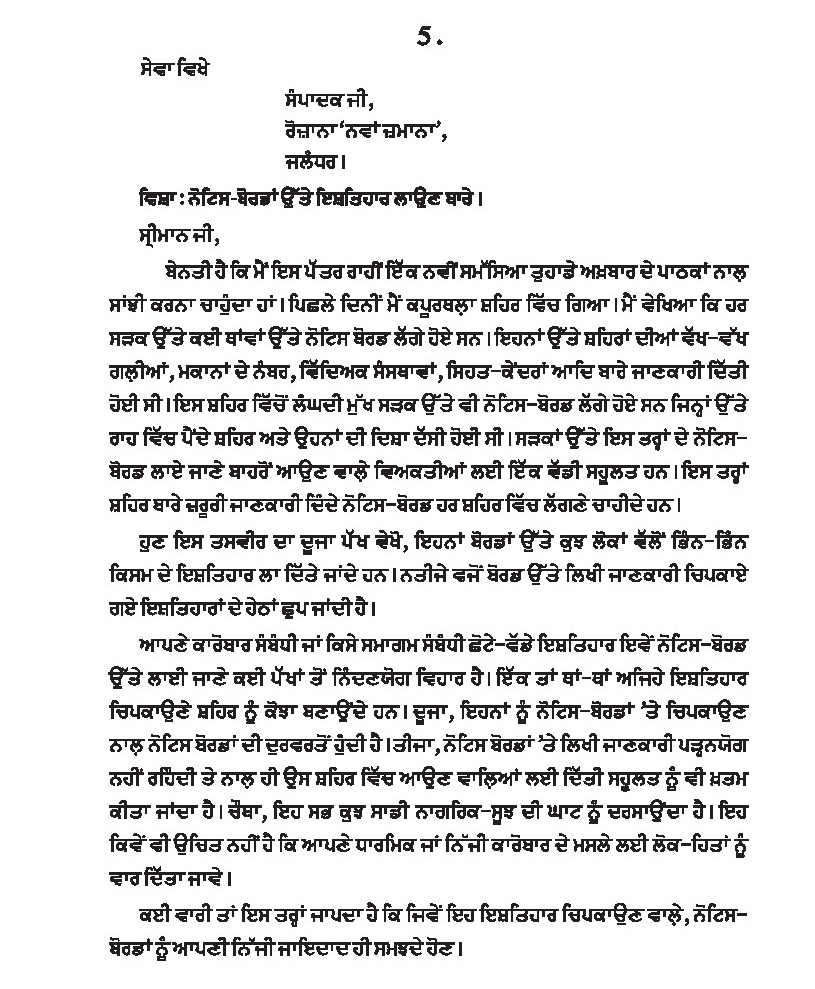 5.
ਸੇਵਾ ਵਿਖੇ
ਸੰਪਾਦਕ ਜੀ,
ਰੋਜ਼ਾਨਾ ‘ਨਵਾਂ ਜ਼ਮਾਨਾ’,
ਜਲੰਧਰ।
ਵਿਸ਼ਾ : ਨੋਟਿਸ-ਬੋਰਡਾਂ ਉੱਤੇ ਇਸ਼ਤਿਹਾਰ ਲਾਉਣ ਬਾਰੇ।
ਸ੍ਰੀਮਾਨ ਜੀ,
ਬੇਨਤੀ ਹੈ ਕਿ ਮੈਂ ਇਸ ਪੱਤਰ ਰਾਹੀਂ ਇੱਕ ਨਵੀਂ ਸਮੱਸਿਆ ਤੁਹਾਡੇ ਅਖ਼ਬਾਰ ਦੇ ਪਾਠਕਾਂ ਨਾਲ਼
ਸਾਂਝੀ ਕਰਨਾ ਚਾਹੁੰਦਾ ਹਾਂ। ਪਿਛਲੇ ਦਿਨੀਂ ਮੈਂ ਕਪੂਰਥਲਾ ਸ਼ਹਿਰ ਵਿੱਚ ਗਿਆ। ਮੈਂ ਵੇਖਿਆ ਕਿ ਹਰ
ਸੜਕ ਉੱਤੇ ਕਈ ਥਾਂਵਾਂ ਉੱਤੇ ਨੋਟਿਸ ਬੋਰਡ ਲੱਗੇ ਹੋਏ ਸਨ। ਇਹਨਾਂ ਉੱਤੇ ਸ਼ਹਿਰਾਂ ਦੀਆਂ ਵੱਖ-ਵੱਖ
ਗਲ਼ੀਆਂ, ਮਕਾਨਾਂ ਦੇ ਨੰਬਰ, ਵਿੱਦਿਅਕ ਸੰਸਥਾਵਾਂ, ਸਿਹਤ-ਕੇਂਦਰਾਂ ਆਦਿ ਬਾਰੇ ਜਾਣਕਾਰੀ ਦਿੱਤੀ
ਹੋਈ ਸੀ। ਇਸ ਸ਼ਹਿਰ ਵਿੱਚੋਂ ਲੰਘਦੀ ਮੁੱਖ ਸੜਕ ਉੱਤੇ ਵੀ ਨੋਟਿਸ-ਬੋਰਡ ਲੱਗੇ ਹੋਏ ਸਨ ਜਿਨ੍ਹਾਂ ਉੱਤੇ
ਰਾਹ ਵਿੱਚ ਪੈਂਦੇ ਸ਼ਹਿਰ ਅਤੇ ਉਹਨਾਂ ਦੀ ਦਿਸ਼ਾ ਦੱਸੀ ਹੋਈ ਸੀ। ਸੜਕਾਂ ਉੱਤੇ ਇਸ ਤਰ੍ਹਾਂ ਦੇ ਨੋਟਿਸ-
ਬੋਰਡ ਲਾਏ ਜਾਣੇ ਬਾਹਰੋਂ ਆਉਣ ਵਾਲ਼ੇ ਵਿਅਕਤੀਆਂ ਲਈ ਇੱਕ ਵੱਡੀ ਸਹੂਲਤ ਹਨ। ਇਸ ਤਰ੍ਹਾਂ
ਸ਼ਹਿਰ ਬਾਰੇ ਜ਼ਰੂਰੀ ਜਾਣਕਾਰੀ ਦਿੰਦੇ ਨੋਟਿਸ-ਬੋਰਡ ਹਰ ਸ਼ਹਿਰ ਵਿੱਚ ਲੱਗਣੇ ਚਾਹੀਦੇ ਹਨ।
ਹੁਣ ਇਸ ਤਸਵੀਰ ਦਾ ਦੂਜਾ ਪੱਖ ਵੇਖੋ, ਇਹਨਾਂ ਬੋਰਡਾਂ ਉੱਤੇ ਕੁਝ ਲੋਕਾਂ ਵੱਲੋਂ ਭਿੰਨ-ਭਿੰਨ
ਕਿਸਮ ਦੇ ਇਸ਼ਤਿਹਾਰ ਲਾ ਦਿੱਤੇ ਜਾਂਦੇ ਹਨ। ਨਤੀਜੇ ਵਜੋਂ ਬੋਰਡ ਉੱਤੇ ਲਿਖੀ ਜਾਣਕਾਰੀ ਚਿਪਕਾਏ
ਗਏ ਇਸ਼ਤਿਹਾਰਾਂ ਦੇ ਹੇਠਾਂ ਛੁਪ ਜਾਂਦੀ ਹੈ।
ਆਪਣੇ ਕਾਰੋਬਾਰ ਸੰਬੰਧੀ ਜਾਂ ਕਿਸੇ ਸਮਾਗਮ ਸੰਬੰਧੀ ਛੋਟੇ-ਵੱਡੇ ਇਸ਼ਤਿਹਾਰ ਇਵੇਂ ਨੋਟਿਸ-ਬੋਰਡ
ਉੱਤੇ ਲਾਈ ਜਾਣੇ ਕਈ ਪੱਖਾਂ ਤੋਂ ਨਿੰਦਣਯੋਗ ਵਿਹਾਰ ਹੈ। ਇੱਕ ਤਾਂ ਥਾਂ-ਥਾਂ ਅਜਿਹੇ ਇਸ਼ਤਿਹਾਰ
ਚਿਪਕਾਉਣੇ ਸ਼ਹਿਰ ਨੂੰ ਕੋਝਾ ਬਣਾਉਂਦੇ ਹਨ। ਦੂਜਾ, ਇਹਨਾਂ ਨੂੰ ਨੋਟਿਸ-ਬੋਰਡਾਂ ’ਤੇ ਚਿਪਕਾਉਣ
ਨਾਲ਼ ਨੋਟਿਸ ਬੋਰਡਾਂ ਦੀ ਦੁਰਵਰਤੋਂ ਹੁੰਦੀ ਹੈ। ਤੀਜਾ, ਨੋਟਿਸ ਬੋਰਡਾਂ ’ਤੇ ਲਿਖੀ ਜਾਣਕਾਰੀ ਪੜ੍ਹਨਯੋਗ
ਨਹੀਂ ਰਹਿੰਦੀ ਤੇ ਨਾਲ਼ ਹੀ ਉਸ ਸ਼ਹਿਰ ਵਿੱਚ ਆਉਣ ਵਾਲ਼ਿਆਂ ਲਈ ਦਿੱਤੀ ਸਹੂਲਤ ਨੂੰ ਵੀ ਖ਼ਤਮ
ਕੀਤਾ ਜਾਂਦਾ ਹੈ। ਚੌਥਾ, ਇਹ ਸਭ ਕੁਝ ਸਾਡੀ ਨਾਗਰਿਕ-ਸੂਝ ਦੀ ਘਾਟ ਨੂੰ ਦਰਸਾਉਂਦਾ ਹੈ। ਇਹ
ਕਿਵੇਂ ਵੀ ਉਚਿਤ ਨਹੀਂ ਹੈ ਕਿ ਆਪਣੇ ਧਾਰਮਿਕ ਜਾਂ ਨਿੱਜੀ ਕਾਰੋਬਾਰ ਦੇ ਮਸਲੇ ਲਈ ਲੋਕ-ਹਿਤਾਂ ਨੂੰ
ਵਾਰ ਦਿੱਤਾ ਜਾਵੇ।
ਕਈ ਵਾਰੀ ਤਾਂ ਇਸ ਤਰ੍ਹਾਂ ਜਾਪਦਾ ਹੈ ਕਿ ਜਿਵੇਂ ਇਹ ਇਸ਼ਤਿਹਾਰ ਚਿਪਕਾਉਣ ਵਾਲ਼ੇ, ਨੋਟਿਸ-
ਬੋਰਡਾਂ ਨੂੰ ਆਪਣੀ ਨਿੱਜੀ ਜਾਇਦਾਦ ਹੀ ਸਮਝਦੇ ਹੋਣ।